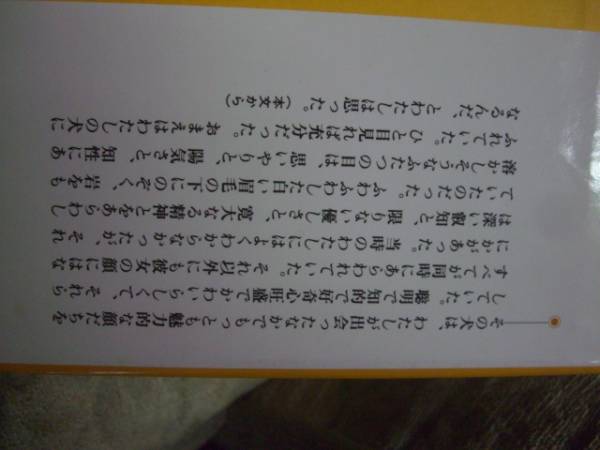 その犬は、わたしが出会ったなかでもっとも魅力的な顔だちを
していた。聡明で知的で好奇心旺盛でかわいらしくて、それら
すべてが同時にあらわれていた。それ以外にも彼女の顔にはな
にかがあった。当時のわたしにはよくわからなかったが、それ
は深い叡知と、限りない優しさと、寛大なる精神とをあらわし
ていたのだった。ふわふわした白い眉毛の下にのぞく、岩をも
溶かしそうなふたつの目は、思いやりと、陽気さと、知性にあ
ふれていた。ひと目見れば充分だった。おまえはわたしの犬に
なるんだ、とわたしは思った。（本文から）